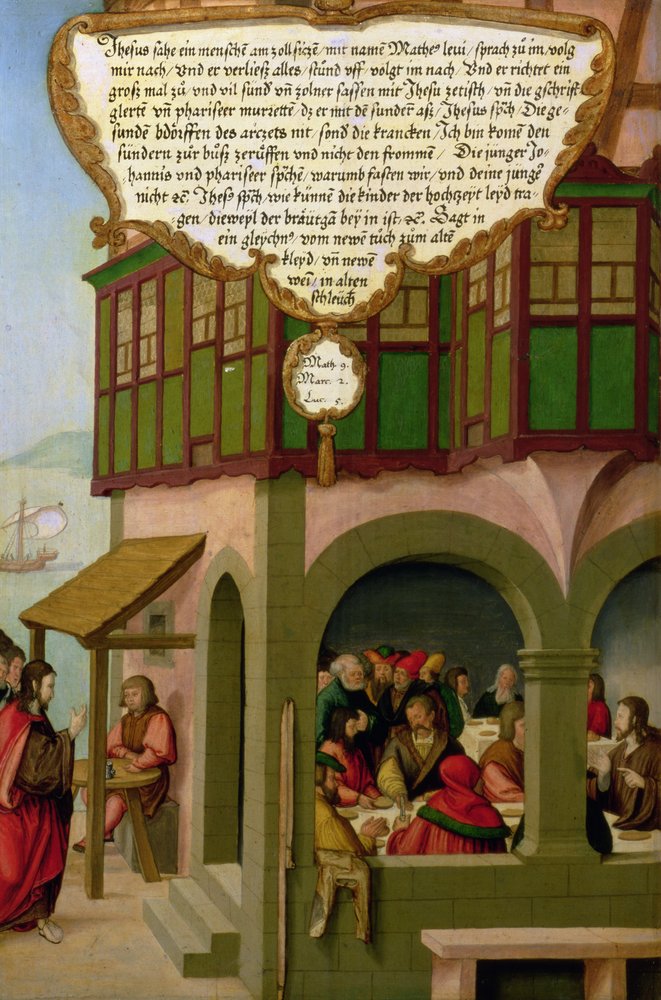 Jhesus sahe ein menschẽ am zoll sitzẽ/ mit namẽ Matheꝰ levi/ sprach zů im/ volg
mir nach/ Vnd er verließ alles/ stůnd vff/ volgt im nach/ Vnd er richtet ein
groß mal zů/ vnd vil sund vñ zolner sassen mit Jhesu ze tisch/ vñ die gschrifft
glertẽ vñ phariseer murretẽ/ dz er mit dẽ sundern aß/ Jhesus spch/ Die ge-
sundẽ bdörffen des arczets nit/ sond die krancken/ Ich bin komẽ den
sündern zůr bůß zerůffen vnd nicht den frommẽ/ Die junger Jo-
hannis vnd phariseer spchen/ warumb fasten wir/ vnd deine jungẽ
nicht ꝛc. Jhesꝰ spch/ wie künnen die kinder der hochzeyt leyd tra-
gen/ dieweyl der bräutgã bey in ist/ ꝛc. Sagt in
ein gleychnꝰ/ vom newẽ tůch zům altẽ
kleyd/ vñ newẽ
wein/ in alten
schleuch
Math. 9.
Marc. 2.
Luc. 5.